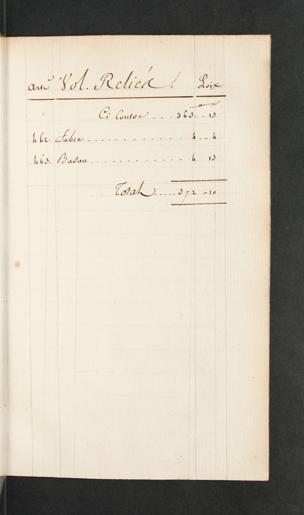 Vol. Reliés. Prix
Ci Contre .... 363 .. 13
462. Fabre ........... 4 .. 4
463. Basan ........... 4 .. 13
Total ..... 372 .. 10